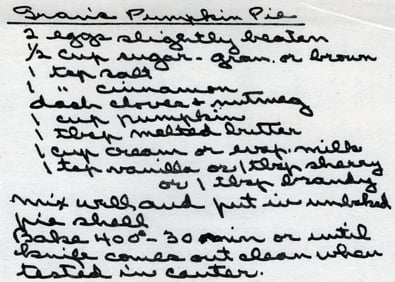 Gravis Pumpkin Pie
2 eggs slightly beaten
1/2 cup sugar - gran. or brown
1 tsp salt
1 " cinnamon
dash cloves & nutmeg
1 cup pumpkin
1 tbsp melted butter
1 cup cream or evap. milk
1 tsp vanilla or 1 tbsp sherry
or 1 tbsp brandy
mix well and put in unbaked
pie shell
Bake 400° - 30 min or until
knife comes out clean when
tested in center.